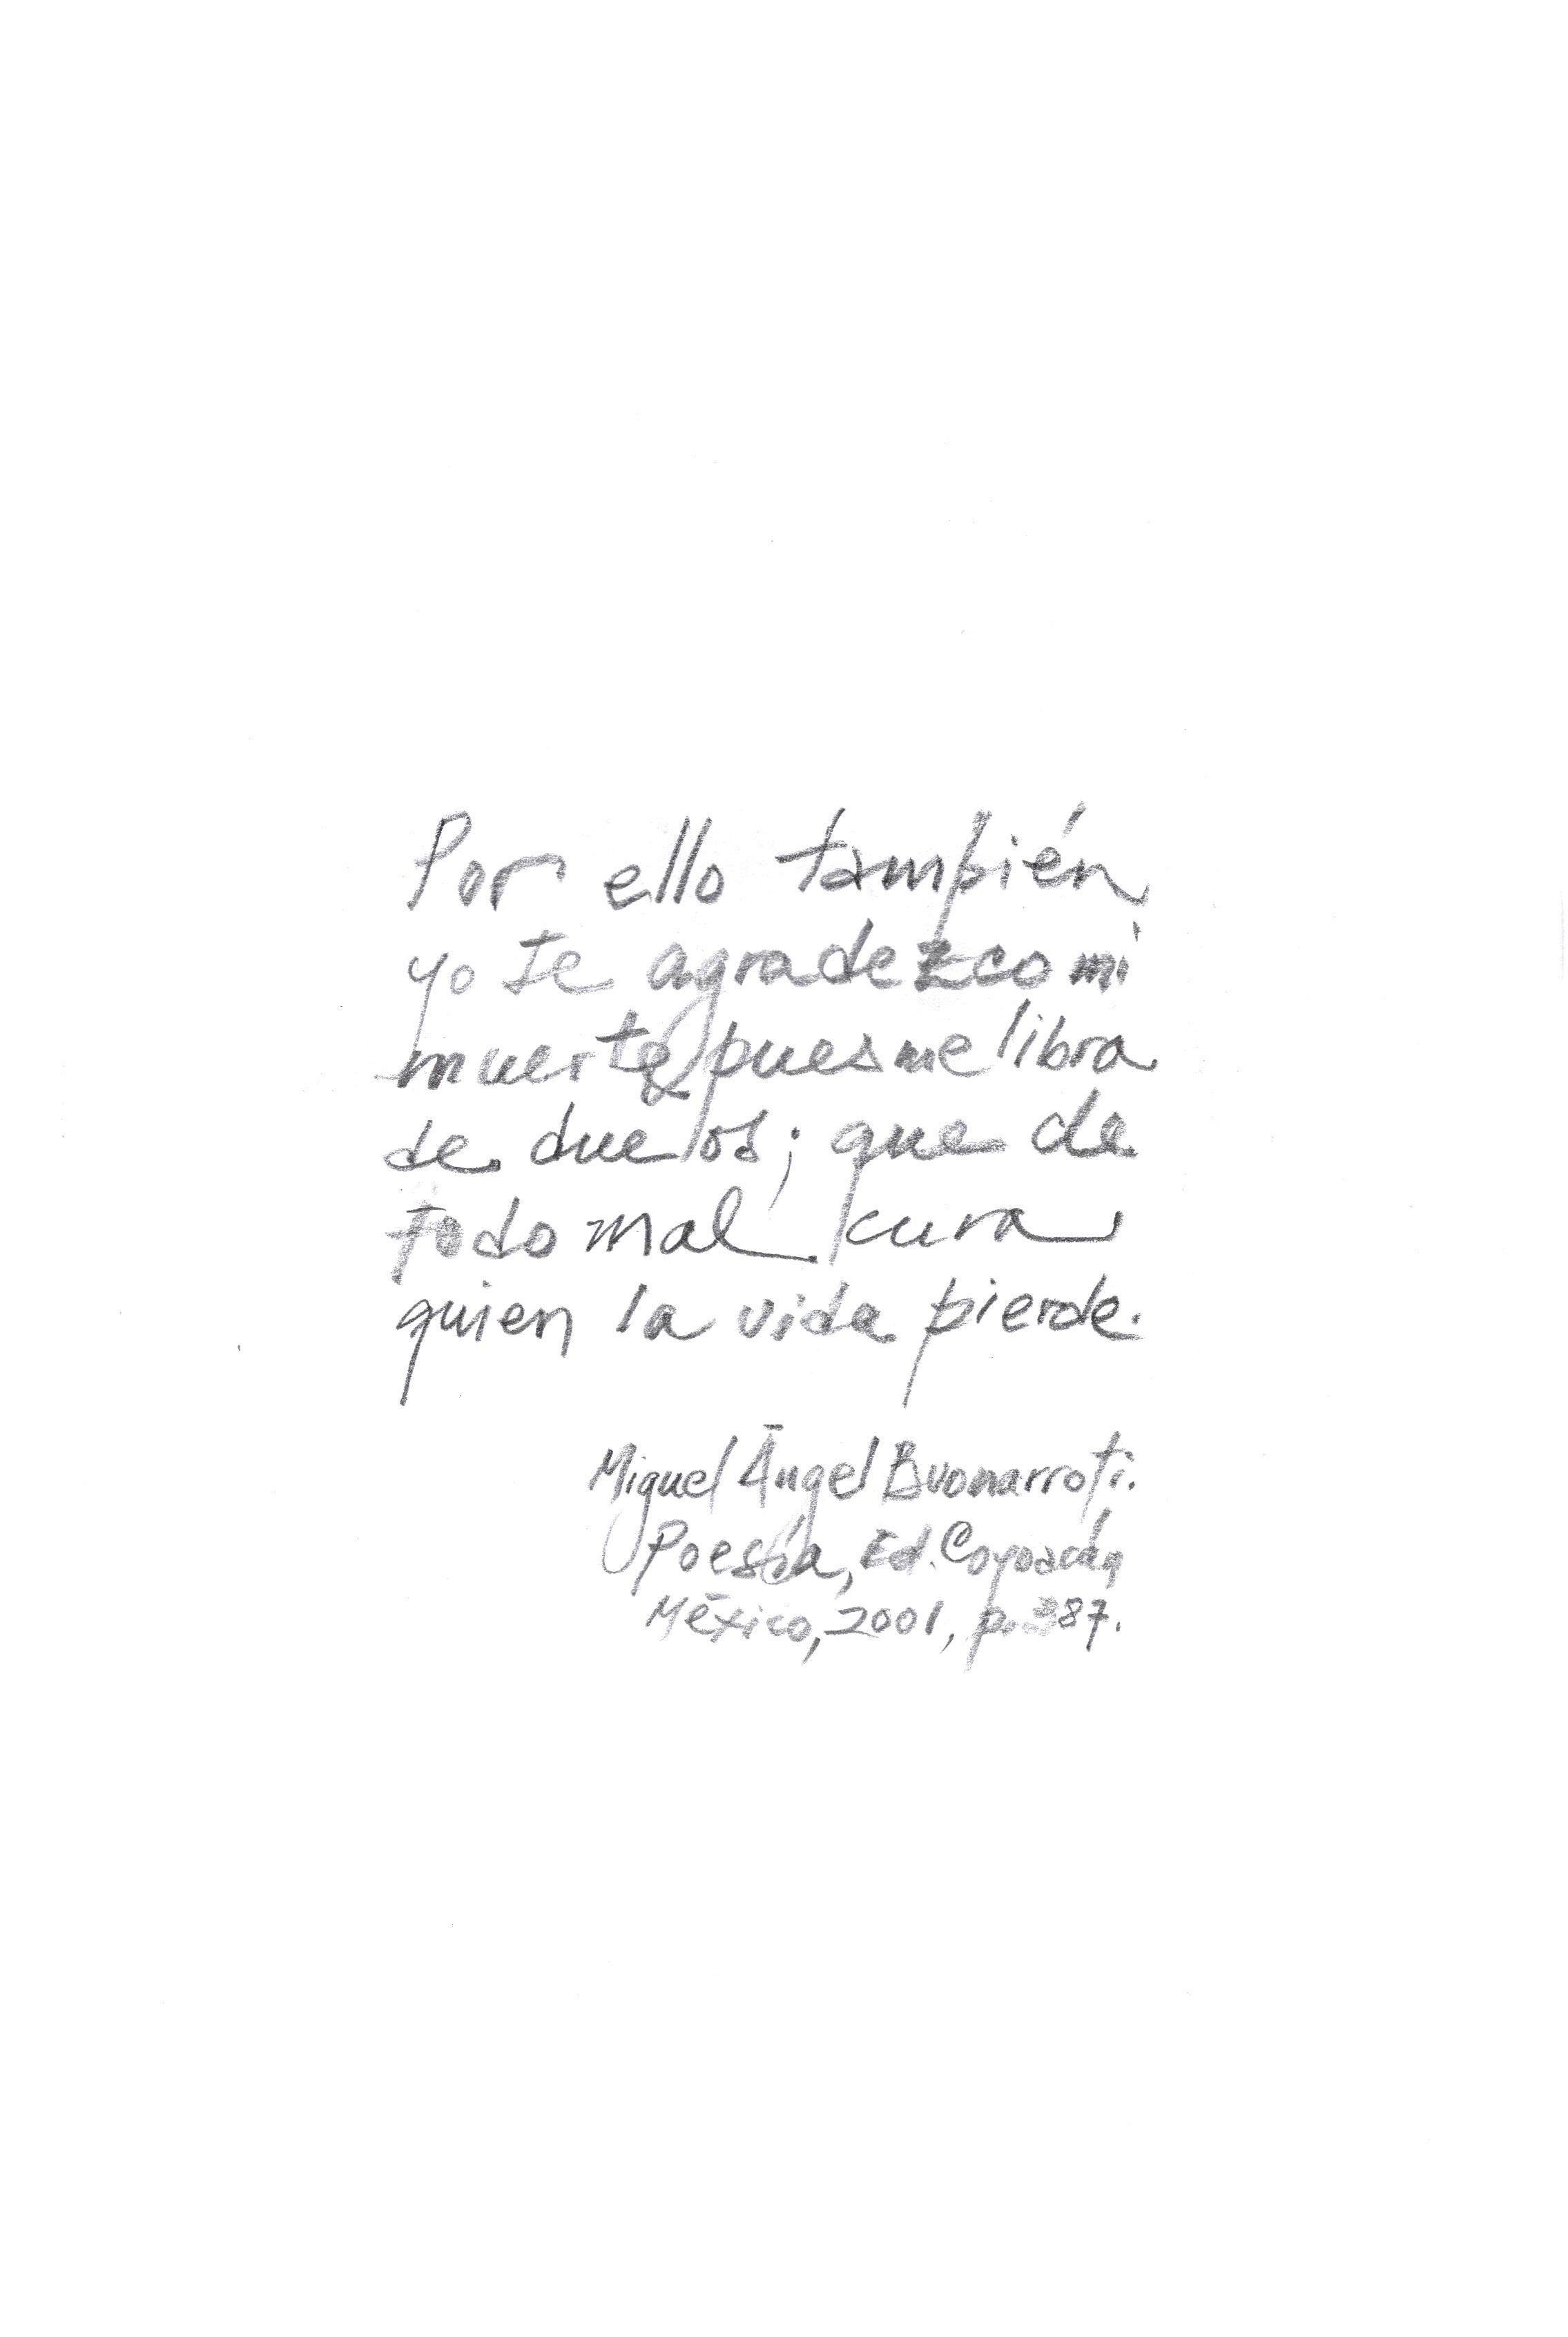 Por ello también
yo te agradezco mi
muerte, pues me libra
de duelos; que de
todo mal cura
quien la vida pierde.
Miguel Ángel Buonarroti.
Poesía, Ed. Coyoacán
México, 2001, p. 387.